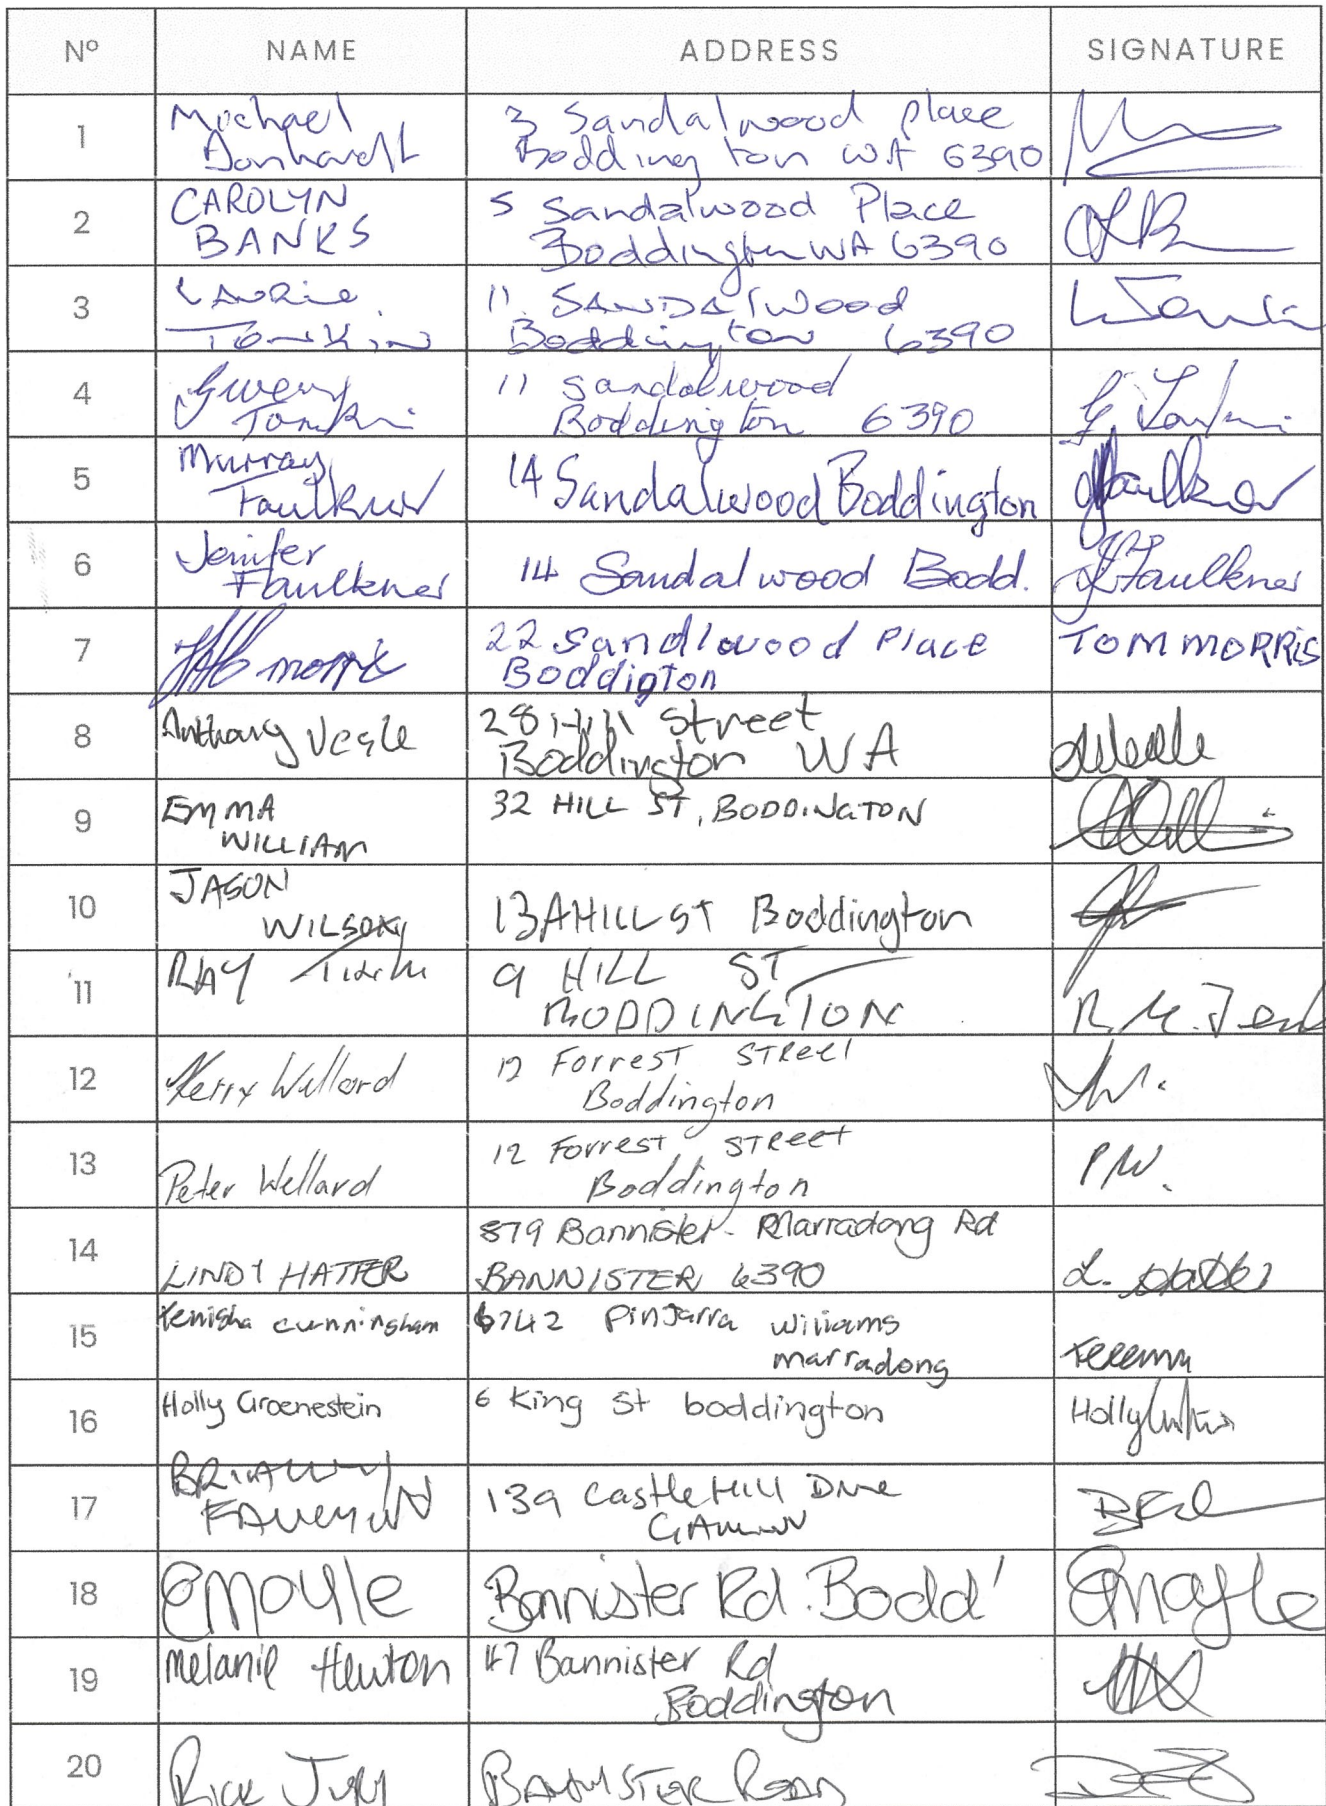 Nº NAME ADDRESS SIGNATURE
1 Michael 3 Sandalwood place
Boddington WA 6390
2 CAROLYN 5 Sandalwood Place
BANKS Boddington WA 6390
3 LAURIE 11 SANDALWOOD
TONKIN Boddington 6390
4 Gweny 11 Sandalwood
Tonkin Boddington 6390 G. Tonkin
5 Murray 14 Sandalwood Boddington Faulkner
Faulkner
6 Jenifer 14 Sandalwood Bodd. J Faulkner
Faulkner
7 morris 22 Sandlwood Place TOM MORRIS
Boddigton
8 Anthony Veale 28 Hill Street
Boddington WA
9 EMMA 32 HILL ST, BODDINGTON
WILLIAM
10 JASON 13A HILL ST Boddington
WILSON
11 RAY 9 HILL ST
BODDINGTON
12 Kerry Wellard 12 Forrest Street
Boddington
13 Peter Wellard 12 Forrest Street P.W.
Boddington
14 879 Bannister-Marradong Rd
LINDY HATTER BANNISTER 6390 L. Hatter
15 Tenisha cunningham 6742 Pinjarra Williams
marradong
16 Holly Groenestein 6 King St boddington Holly
17 139 Castle Hill Drive
18 Emoyle Bannister Rd. Bodd' Emoyle
19 Melanie Hewton 47 Bannister Rd
Boddington
20 Rick BANNISTER ROAD